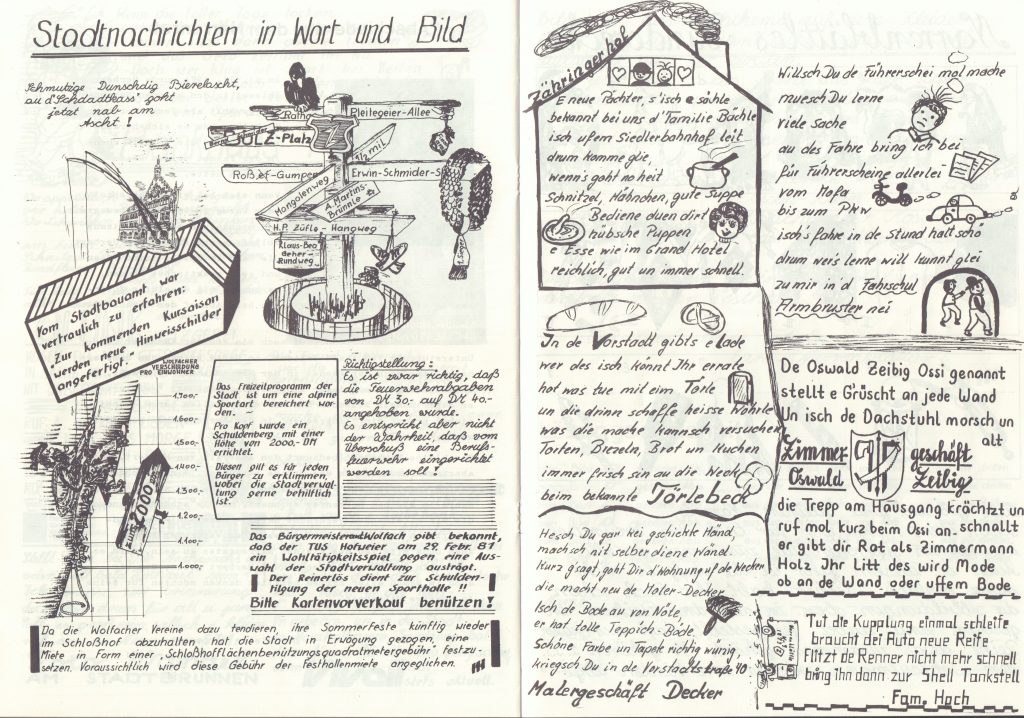 Stadtnachrichten in Wort und Bild
Schmutzige Dunschdig Bierelascht,
au d'Schdadtkass' goht
jetzt nab am
Ascht!
Ratha
Pleitegeier-Allee
JÜLZ-Platz
Roßef-Gumper
Erwin-Schmider-S
Mongolenweg
A. Martins-
Brünnle
H.P. Züfle-Hangweg
Klaus-Beo
Geher-
Rundweg
Vom Stadtbauamt war
vertraulich zu erfahren:
"Zur kommenden Kursaison
werden neue Hinweisschilder
angefertigt."
WOLFACHER
VERSCHULDUNG
PRO EINWOHNER
1.700.-
1.600.-
1.500.-
1.400.-
1.300.-
1.200.-
1.100.-
1.000.-
zum
2000er
Das Freizeitprogramm der
Stadt ist um eine alpine
Sportart bereichert wor
den. -
Pro Kopf wurde ein
Schuldenberg mit einer
Höhe von 2000.-DM
errichtet.
Diesen gilt es für jeden
Bürger zu erklimmen,
wobei die Stadtverwal-
tung gerne behilflich
ist.
Richtigstellung:
Es ist zwar richtig, daß
die Feuerwehrabgaben
von DM 30.- auf DM 40.-
angehoben wurde.
Es entspricht aber nicht
der Wahrheit, daß vom
Überschuß eine Berufs
feuerwehr eingerichtet
werden soll!
Das Bürgermeisteramt Wolfach gibt bekannt,
daß der TUS Hofweier am 29. Febr. 87
ein Wohltätigkeitsspiel gegen eine Aus-
wahl der Stadtverwaltung austrägt.
Der Reinerlös dient zur Schulden-
tilgung der neuen Sporthalle !!
Bitte Kartenvorverkauf benützen!
Da die Wolfacher Vereine dazu tendieren, ihre Sommerfeste künftig wieder
im Schloßhof abzuhalten hat die Stadt in Erwägung gezogen, eine
Miete in Form einer "Schloßhofflächenbenützungsquadratmetergebühr" festzu-
setzen. Voraussichtlich wird diese Gebühr der Festhallenmiete angeglichen.
Zähringerhof
E neue Pächter, s'isch e sähle
bekannt bei uns d'Familie Bächle
isch ufem Siedlerbahnhof leit
drum komme glie,
wenn's goht no heit
Schnitzel, Hähnchen, gute Suppe
Bediene duen dirt
hübsche Puppen
e Esse wie im Grand Hotel
reichlich, gut un immer schnell.
In de Vorstadt gibt's e Lade
wer des isch könnt Ihr errate
hot was tue mit eim Törle
un die drinn schaffe heisse Wöhrle
was die mache kannsch versuchen
Torten, Brezeln, Brot un Kuchen
immer frisch sin au die Weck
beim bekannte Törlebeck
Hesch Du gar kei gschickte Händ,
mach ich nit selber diene Wänd.
Kurz g'sagt, goht Dir d'Wohnung uf de Wecker
die macht neu de Maler-Decker
Isch de Bode au von Nöte,
er hat tolle Teppich-Böde.
Schöne Farbe un Tapete richtig wünig,
kriegsch Du in de Vorstadtstraße 40
Malergeschäft Decker
Willsch Du de Führerschei mol mache
muesch Du lerne
viele Sache
au des Fahre bring ich bei
für Führerscheine allerlei
vom Mofa
bis zum PKW
isch's fahre in de Stund halt schö
drum wer's lerne will kunnt glei
zu mir in'd Fahrschul
Armbruster nei
De Oswald Zeibig Ossi genannt
stellt e Grüscht an jede Wand
Un isch de Dachstuhl morsch un
alt
Zimmer geschäft
Oswald Zeibig
die Trepp am Hausgang krächtzt un
schnallt
ruf mol kurz beim Ossi an-
er gibt dir Rat als Zimmermann
Holz Ihr Litt des wird Mode
ob an de Wand oder uffem Bode
Tut die Kupplung einmal schleife
braucht dei Auto neue Reife
Flitzt de Renner nicht mehr schnell
bring ihn dann zur Shell Tankstell
Fam. Hoch